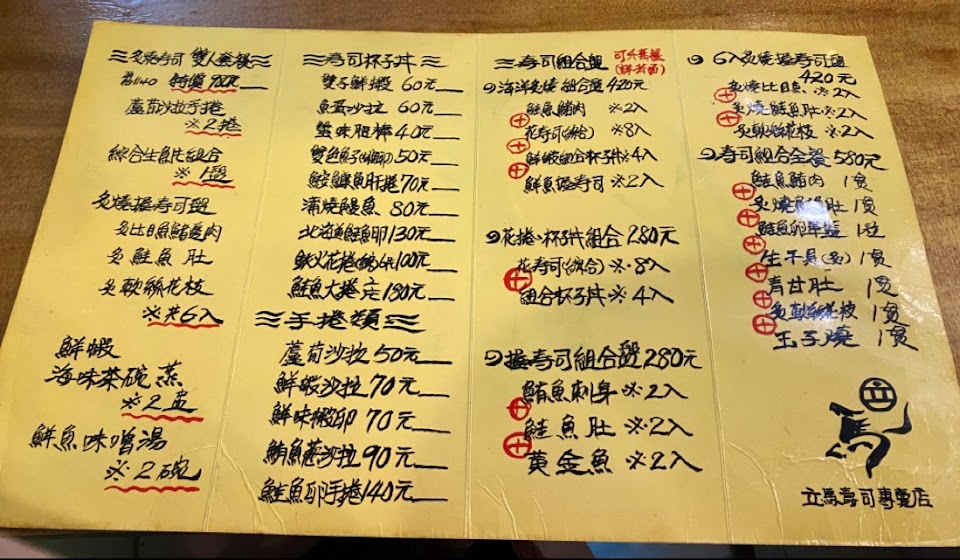 炙燒壽司 雙人套餐
特價 700元
蘆荀沙拉手捲
※2捲
綜合生魚片組合
※1盤
炙燒握壽司盤
炙比目魚鰭邊肉
炙鮭魚肚
炙軟絲花枝
※共6入
鮮蝦
海味茶碗蒸
※2盅
鮮魚味噌湯
※2碗
壽司杯子丼
雙子鮮蝦 60元
魚蛋沙拉 60元
蟹味腿棒 40元
雙色魚子 50元
鮟鱇魚肝捲 70元
蒲燒鰻魚 80元
北海道鮭魚卵 130元
鐵火花捲 100元
鮭魚大捲 180元
手捲類
蘆荀沙拉 50元
鮮蝦沙拉 70元
鮮味蝦卵 70元
鮪魚蔥沙拉 90元
鮭魚卵手捲 140元
壽司組合盤
海洋炙燒組合盤 420元
鮭魚鮪肉 ※2入
花壽司(綜合) ※8入
鮮蝦組合杯子丼 ※4入
鮮魚握壽司 ※2入
花捲、杯子丼組合 280元
花壽司(綜合) ※8入
組合杯子丼 ※4入
握壽司組合盤 280元
鮪魚刺身 ※2入
鮭魚肚 ※2入
黃金魚 ※2入
6入炙燒握壽司盤
420元
炙燒比目魚 ※2入
炙燒鮭魚肚 ※2入
炙軟絲花枝 ※2入
壽司組合全餐 580元
鮭魚鮪肉 1貫
炙燒鮭魚肚 1貫
鮭魚卵軍艦 1粒
生干貝(炙) 1貫
青甘肚 1貫
炙軟絲花枝 1貫
玉子燒 1貫
立馬壽司專賣店